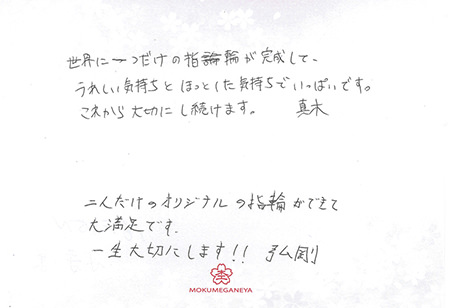 世界に一つだけの指輪が完成して、
うれしい気持ちとほっとした気持ちでいっぱいです。
これから大切にし続けます。 真木
二人だけのオリジナルの指輪ができて
大満足です。
一生大切にします!! 弘剛
MOKUMEGANEYA